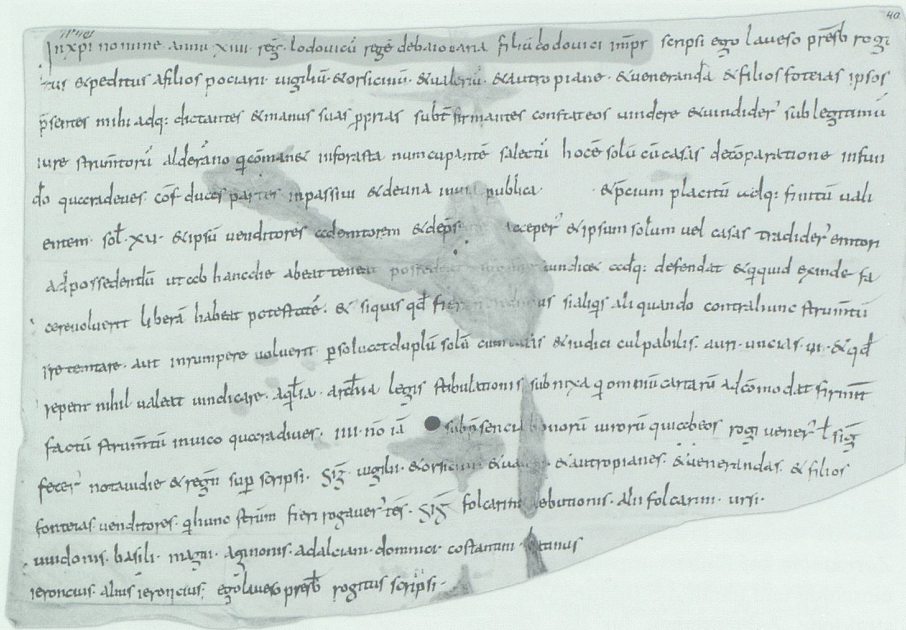 In xpi nomine annu XIII reg lodovicū regē debaiovaria filiū lodovici impr scripsi ego laueso presb rogi
tus expeditus afilios pociani uigiliū & orsicinū & ualeriū & autropiane & ueneranda & filios foteias ipsos
psentes mihi adq: dictantes & manus suas pprias subt firmantes constateos uindere & uindider sub legitimū
iure strumtorū alderano q comanet inforasta numcupantē salectū hocē solū cū casas decōparatione infun
do quadraues. cof duces partes inpassiui & deuna publica & pcium placitū adq: finitū uali
entem sol XII & ipsū uenditores acceper & ipsum solum uel casas tradider emtori
ad possedendū ut ab hanc die abeat teneat uindicet adq: defendat & quidquid exinde fa
cere uoluerit liberā habeat potestatē. & siquis qd sialiqs aliquando contra hunc strumtū
ire temtare aut inrumpere uoluerit psoluat duplū solū & iudici culpabilis auri uncias VI & qd
repetit nihil ualeat uindicare. aqlia ardia legis stibulationis subnixa q omniū cartarū adcōmodat firmit
factū strumtū in uico quadraues. IIII nō ia subpsencia bonorū uirorū qui abeos rogi uener t sig
fecer nota die & regn sup scripsi. Sig uigilii & orsicini & autropianes & uenerandas & filios
fonteias uenditores q hunc strum fieri rogauer tes. Sig folcarini ebutionis alii folcarini ursi
uuidonis basili magni aginonis adalciani dominici costantini
ieroncius alius ieroncius ego laueso presb rogitus scripsi